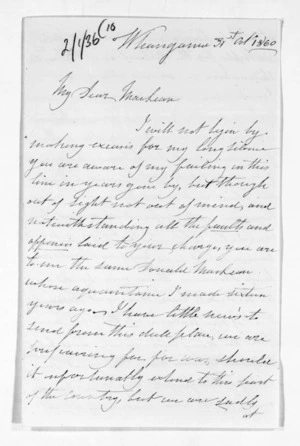 2/1/36 (10
Whanganui 31st Oct 1860
My Dear Maclean
I will not begin by
making excuses for my long silence
you are aware of my failing in this
line in years gone by, but though
out of sight not out of mind, and
notwithstanding all the faults and
offences laid to your charge, you are
to me the same Donald Maclean
whose aquaintance I made sixteen
years ago. I have little news to
send from this dull place, we are
preparing for war should
it unfortunatly extend to this part
of the country, but we are sadly
at